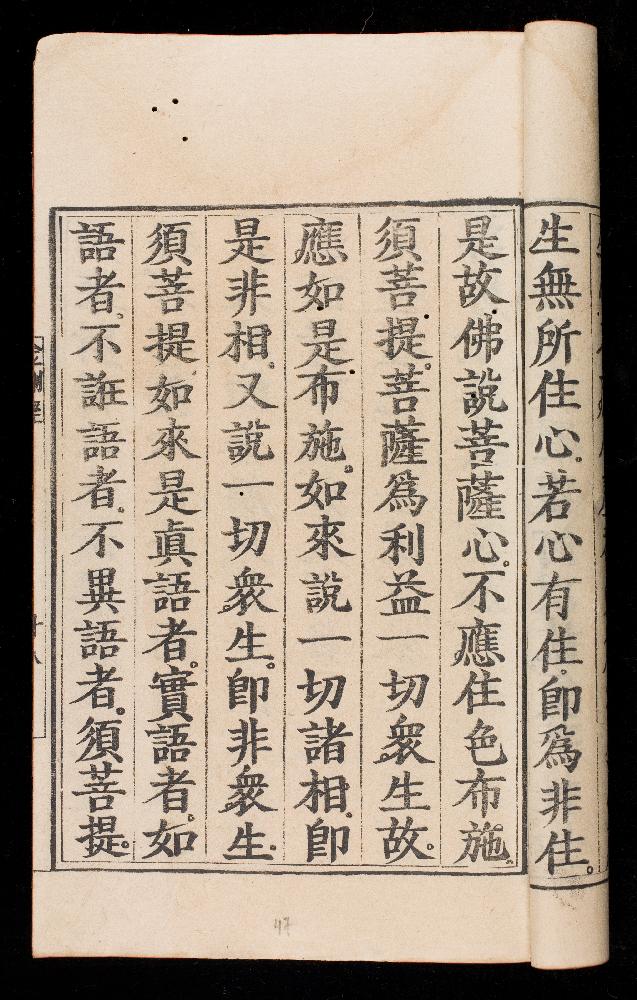 生無所住心。若心有住。卽爲非住。
是故佛說菩薩心。不應住色布施。
須菩提。菩薩爲利益一切衆生故。
應如是布施。如來說一切諸相。卽
是非相。又說一切衆生。卽非衆生。
須菩提如來是眞語者。實語者。如
語者。不誑語者。不異語者。須菩提。
47